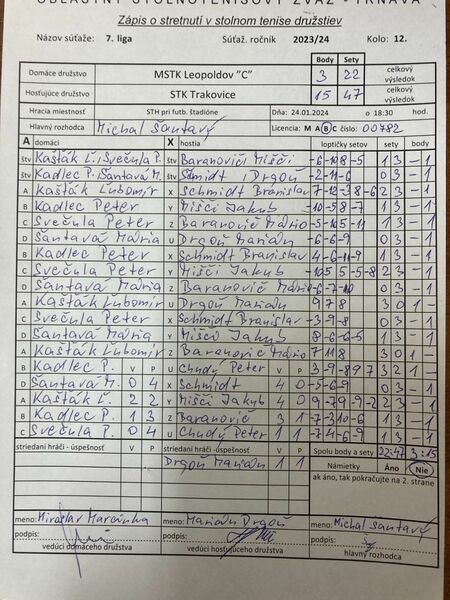 OBLASTNÝ STOLNOTENISOVÝ ZVÄZ - TRNAVA
Zápis o stretnutí v stolnom tenise družstiev
Názov súťaže: 7. liga Súťaž. ročník 2023/24 Kolo: 12.
Body Sety
Domáce družstvo MSTK Leopoldov "C" 3 22 celkový výsledok
Hosťujúce družstvo STK Trakovice 15 47 celkový výsledok
Hracia miestnosť STH pri futb. štadióne Dňa: 24.01.2024 o 18:30 hod.
Hlavný rozhodca Michal Šantavý Licencia: M A B C číslo: 00782
A domáci X hostia loptičky setov sety body
štv Kašták Ľ. Svečula P. štv Baranovič Miščí -6 -10 8 -5 1 3 - 1
štv Kadlec P. Šantavá M. štv Šmidt, Drgoň -2 -11 -6 0 3 - 1
A Kašták Ľubomír X Schmidt Branislav 7 -12 3 -8 -6 2 3 - 1
B Kadlec Peter Y Miščí Jakub -10 -5 8 -7 1 3 - 1
C Svečula Peter Z Baranovič Mário -5 -10 5 -11 1 3 - 1
D Šantavá Mária U Drgoň Marián -6 -6 -9 0 3 - 1
B Kadlec Peter X Schmidt Branislav -4 6 -11 -9 1 3 - 1
C Svečula Peter Y Miščí Jakub -10 5 5 -5 -8 2 3 - 1
D Šantavá Mária Z Baranovič Mário -6 -7 -10 0 3 - 1
A Kašták Ľubomír U Drgoň Marián 9 7 8 3 0 1 -
C Svečula Peter X Schmidt Branislav -3 -9 -8 0 3 - 1
D Šantavá Mária Y Miščí Jakub -8 -6 6 -5 1 3 - 1
A Kašták Ľubomír Z Baranovič Mário 7 11 8 3 0 1 -
B Kadlec P. V P U Chudý Peter V P 3 -9 -8 9 7 3 2 1 -
D Šantavá M. 0 4 X Schmidt 4 0 -5 -6 -9 0 3 - 1
A Kašták Ľ. 2 2 Y Miščí Jakub 4 0 9 -7 9 -9 -2 2 3 - 1
B Kadlec P. 1 3 Z Baranovič 3 1 -7 -3 10 -6 1 3 - 1
C Svečula P. 0 4 U Chudý Peter 1 1 -7 4 -6 -9 1 3 - 1
striedaní hráči - úspešnosť striedaní hráči - úspešnosť Spolu body a sety 22:47 3:15
Drgoň Marián 1 1 Námietky Áno Nie
ak áno, tak pokračujte na 2. strane
meno: Miroslav Marcinka meno: Marián Drgoň meno: Michal Šantavý
podpis: podpis: podpis:
vedúci domáceho družstva vedúci hosťujúceho družstva hlavný rozhodca